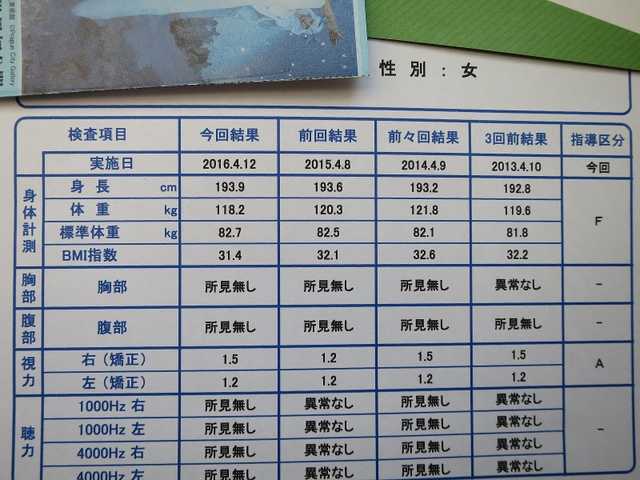 性 別 : 女
検査項目 今回結果 前回結果 前々回結果 3回前結果 指導区分
実施日 2016.4.12 2015.4.8 2014.4.9 2013.4.10 今回
身体計測 身 長 cm 193.9 193.6 193.2 192.8 F
体 重 kg 118.2 120.3 121.8 119.6
標準体重 kg 82.7 82.5 82.1 81.8
BMI指数 31.4 32.1 32.6 32.2
胸部 胸部 所見無し 所見無し 所見無し 異常なし －
腹部 腹部 所見無し 所見無し 所見無し 所見無し －
視力 右（矯正） 1.5 1.2 1.5 1.5 A
左（矯正） 1.2 1.2 1.2 1.2
聴力 1000Hz 右 所見無し 異常なし 所見無し 異常なし －
1000Hz 左 所見無し 異常なし 所見無し 異常なし
4000Hz 右 所見無し 異常なし 所見無し 異常なし
4000Hz 左 所見無し 異常なし 所見無し 異常なし